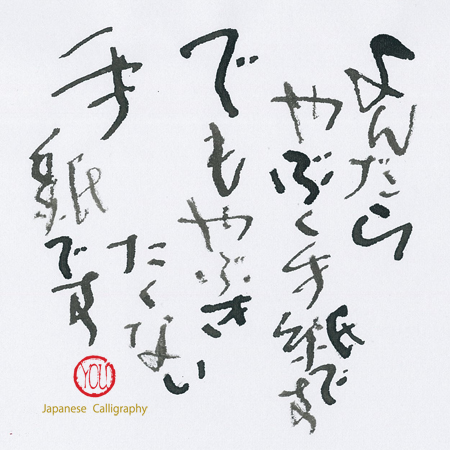 よんだら
やぶく手紙です
でもやぶき
たくない
手紙です
YOU
Japanese Calligraphy